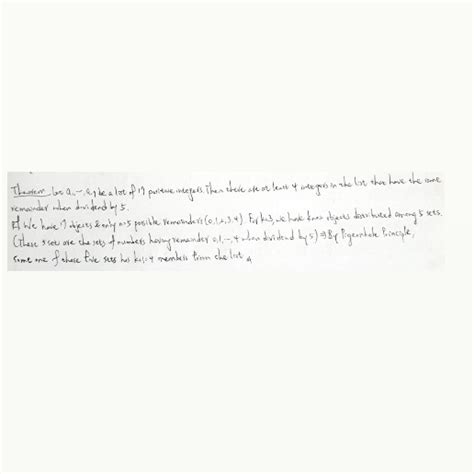 Theorem Let a₁, ..., a₁₇ be a list of 17 positive integers. Then there are at least 4 integers in the list that have the same
remainder when dividend by 5.
We have 17 objects & only n=5 possible remainders (0,1,2,3,4). For k=3, we have objects distributed among 5 sets.
(These 5 sets are the sets of numbers having remainder 0,1,...,4 when dividend by 5) ⇒ By Pigeonhole Principle,
Some one of these five sets has k+1=4 members from the list.